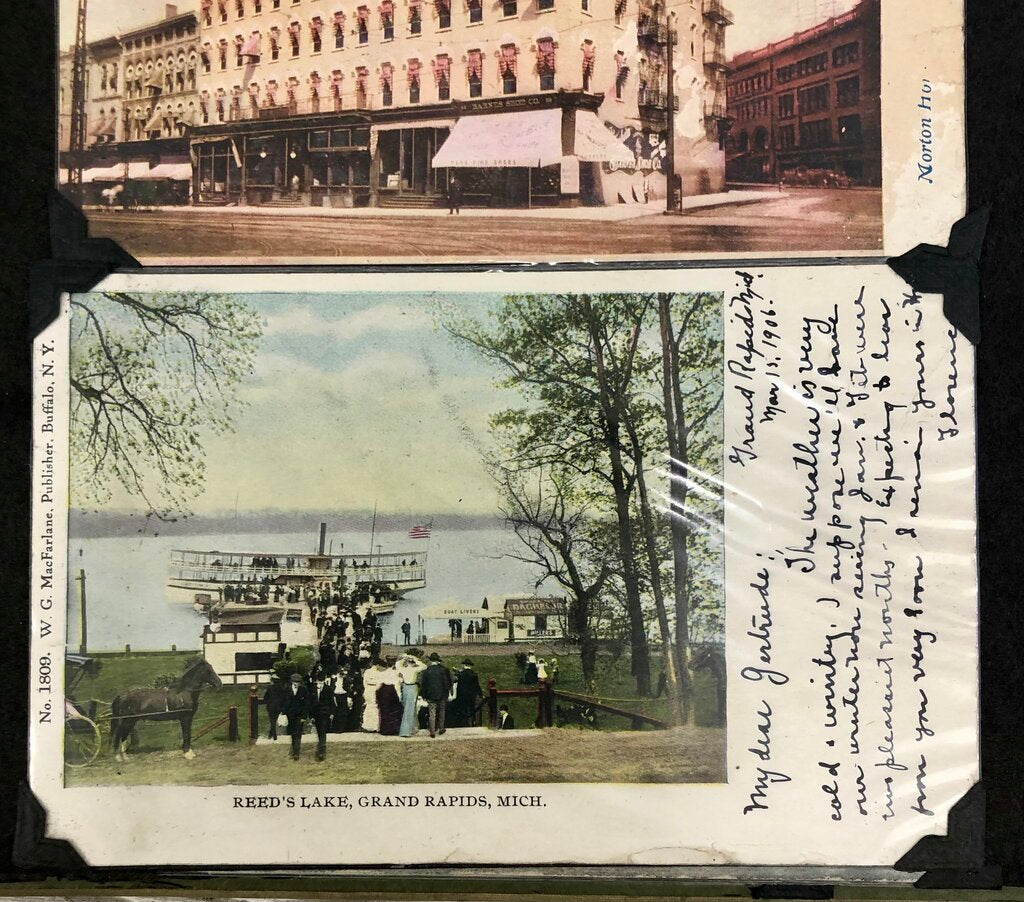 BARNES SHOE CO.
FINE SHOES
Morton Ho
No. 1809. W. G. MacFarlane, Publisher, Buffalo, N. Y.
BOAT LIVERY
REED'S LAKE, GRAND RAPIDS, MICH.
Grand Rapids Mich.
Mar 13, 1906.
My dear Gertrude:
The weather is very
cold & wintry, I suppose we'll have
our winter now seeing Jan. & Feb. were
two pleasant months. Expecting to hear
from you very soon I remain yours in
Florence